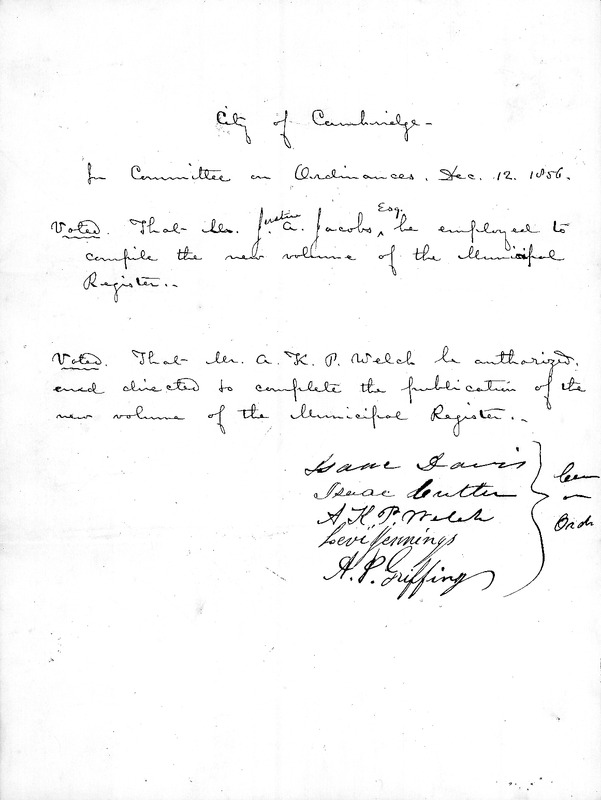 City of Cambridge-
In Committee on Ordinances. Dec. 12. 1856.
Voted. That Mr. Justin A. Jacobs Esq. be employed to
compile the new volume of the Municipal
Register..
Voted. That Mr. A. K. P. Welch be authorized,
and directed to complete the publication of the
new volume of the Municipal Register..
Isaac Davis
Isaac Cutter
A. K. P. Welch
Levi Jennings
A. P. Griffing
Com
on
Ords